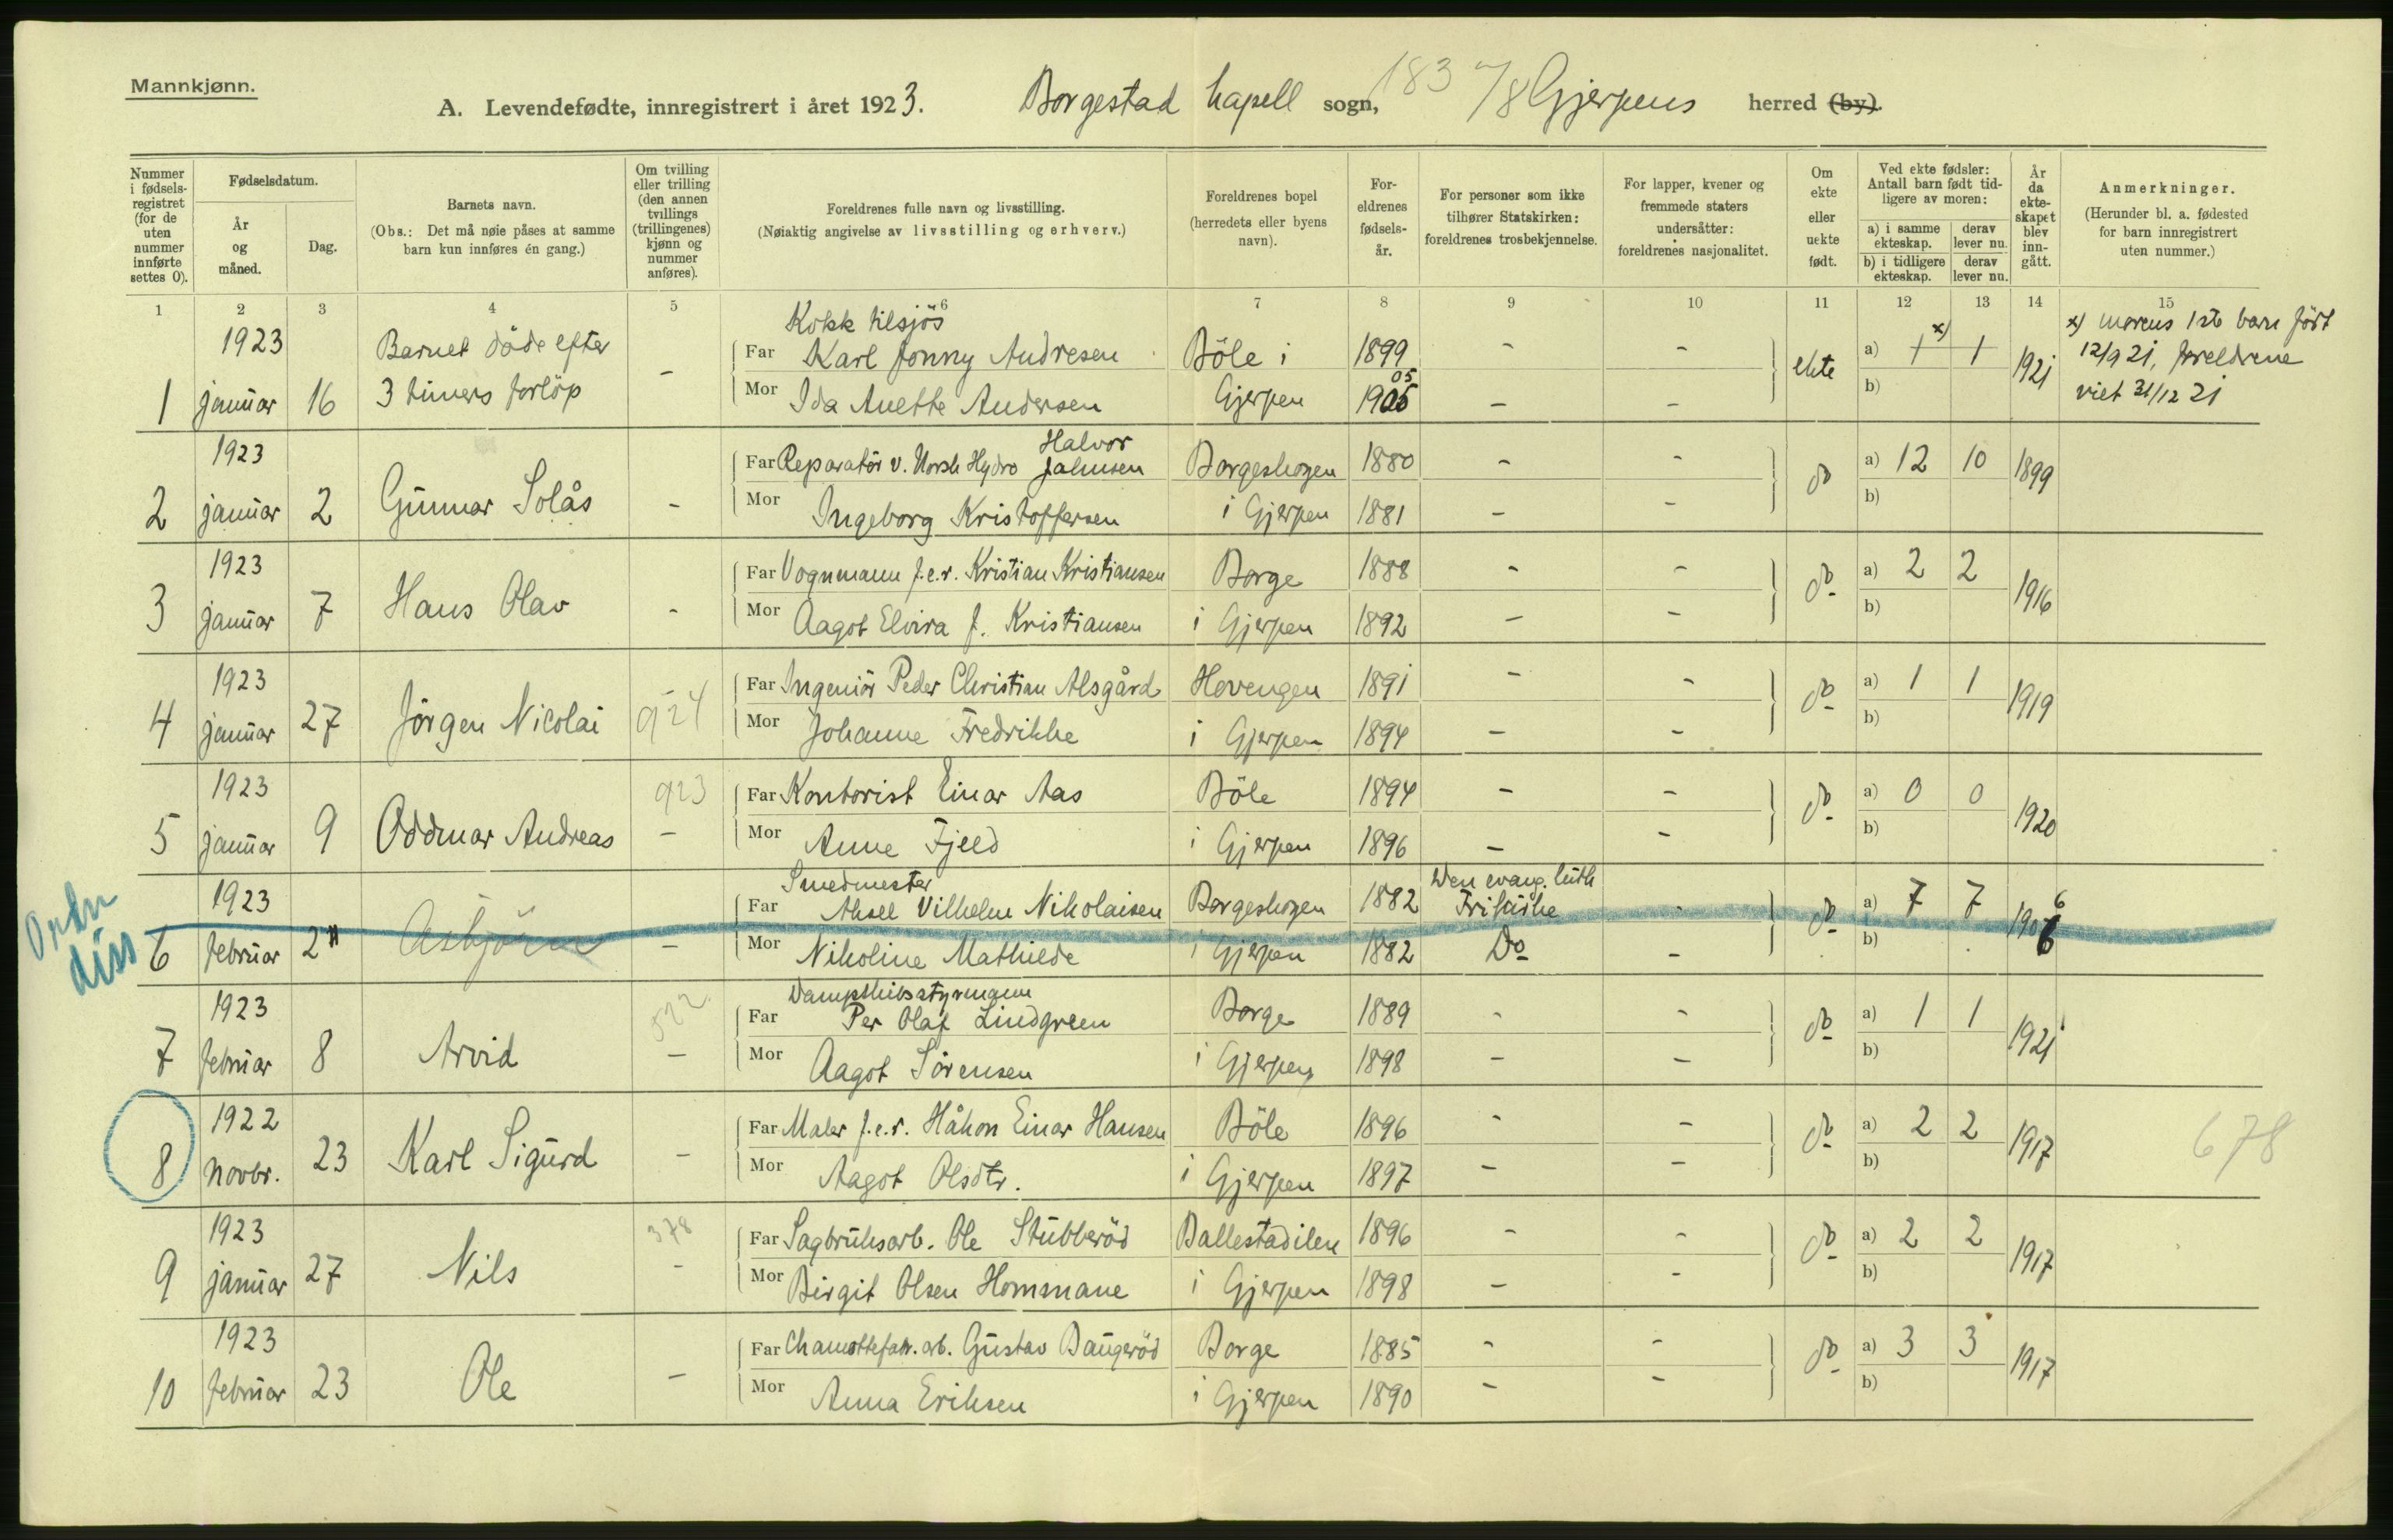 Mannkjønn.
A. Levendefødte, innregistrert i året 1923. Borgestad kapell sogn, 183 7/8 Gjerpens herred (by).
Nummer i fødsels-registret (for de uten nummer innførte settes 0).
Fødselsdatum.
År og måned.
Dag.
Barnets navn.
(Obs.: Det må nøie påses at samme barn kun innføres én gang.)
Om tvilling eller trilling (den annen tvillings (trillingenes) kjønn og nummer anføres).
Foreldrenes fulle navn og livsstilling.
(Nøiaktig angivelse av livsstilling og erhverv.)
Foreldrenes bopel (herredets eller byens navn).
For-eldrenes fødsels-år.
For personer som ikke tilhører Statskirken: foreldrenes trosbekjennelse.
For lapper, kvener og fremmede staters undersåtter: foreldrenes nasjonalitet.
Om ekte eller uekte født.
Ved ekte fødsler: Antall barn født tid-ligere av moren:
a) i samme ekteskap.
derav lever nu.
b) i tidligere ekteskap.
derav lever nu.
År da ekte-skapet blev inn-gått.
Anmerkninger.
(Herunder bl. a. fødested for barn innregistrert uten nummer.)
1 2 3 4 5 6 7 8 9 10 11 12 13 14 15
1923 Barnet døde efter Kokk tilsjös
Far Karl Jonny Andresen Böle i 1899 - - ekte a) 1 x) 1 1921 x) morens 1ste barn født
12/9 21, foreldrene
1 januar 16 3 timers forlöp - Mor Ida Anette Andersen Gjerpen 1905 05 - - b) viet 31/12 21
1923 Far Reparatör v. Norsk Hydro Halvor Jalmsen Borgeshogen 1880 - - do a) 12 10 1899
2 januar 2 Gunnar Solås - Mor Ingeborg Kristoffersen i Gjerpen 1881 - - b)
1923 Far Vognmann f.e.r. Kristian Kristiansen Borge 1888 - - do a) 2 2 1916
3 januar 7 Hans Olav - Mor Aagot Elvira f. Kristiansen i Gjerpen 1892 - - b)
1923 Far Ingeniör Peder Christian Alsgård Hovengen 1891 - - do a) 1 1 1919
4 januar 27 Jörgen Nicolai - 924 Mor Johanne Fredrikke i Gjerpen 1894 - - b)
1923 923 Far Kontorist Einar Aas Böle 1894 - - do a) 0 0 1920
5 januar 9 Oddmar Andreas - Mor Anne Fjeld i Gjerpen 1896 - - b)
1923 Smedmester Den evang. luth
Far Aksel Vilhelm Nikolaisen Borgeshogen 1882 Frikirke - do a) 7 7 1906 6
6 februar 2 Asbjörn - Mor Nikoline Mathilde i Gjerpen 1882 Do - b)
diss
1923 522 Dampskibsstyrmann
Far Per Olaf Lindgreen Borge 1889 - - do a) 1 1 1921
7 februar 8 Arvid - Mor Aagot Sörensen i Gjerpen 1898 - - b)
1922 Far Maler f.e.r. Håkon Einar Hansen Böle 1896 - - do a) 2 2 1917 678
8 novbr. 23 Karl Sigurd - Mor Aagot Olsdtr. i Gjerpen 1897 - - b)
1923 378 Far Sagbruksarb. Ole Stubberöd Ballestadilen 1896 - - do a) 2 2 1917
9 januar 27 Nils - Mor Birgit Olsen Hommane i Gjerpen 1898 - - b)
1923 Far Chamottefabr. arb. Gustav Baugeröd Borge 1885 - - do a) 3 3 1917
10 februar 23 Ole - Mor Anna Eriksen i Gjerpen 1890 - - b)